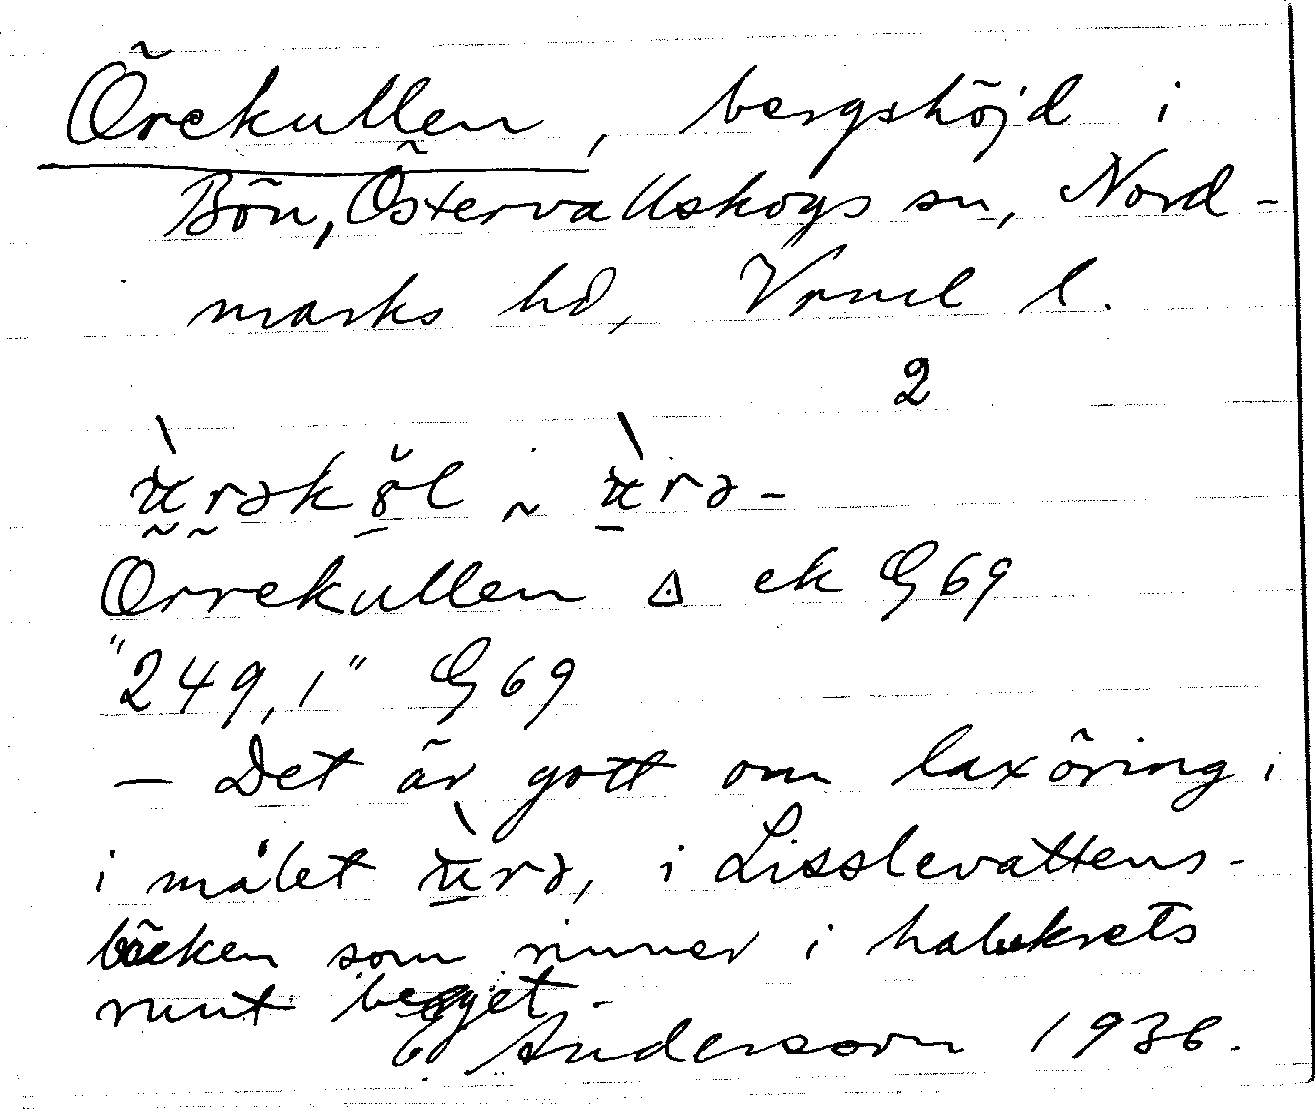 Örekullen, bergshöjd i
Bön, Östervallskogs sn, Nord-
marks hd, Vrml l.
2
ürəkɤ̆l ~ ürə-
Örrekullen △ ek G69
"249,1" G69
— Det är gott om laxöring i
i målet ürə, i Lisslevattens-
bäcken som rinner i halvkrets
runt berget.
E. Anderson 1936.